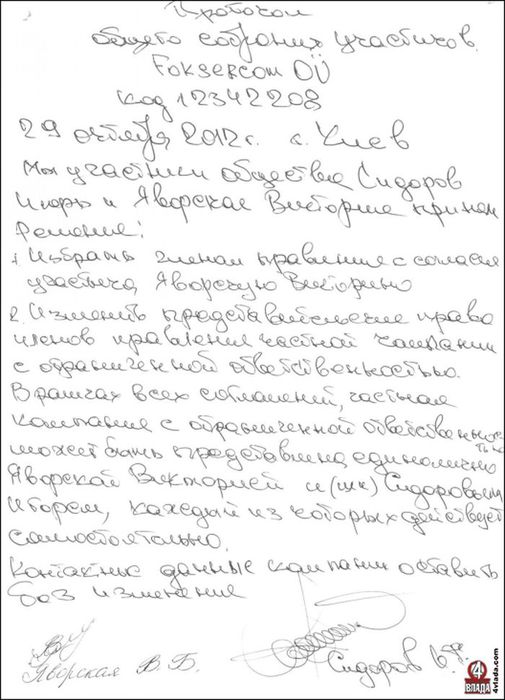 Протокол
общего собрания участников
Foksercom OÜ
код 12342208
29 октября 2012г. г. Киев
Мы участники общества Сидоров
Игорь и Яворская Виктория приняли
Решение:
1. Избрать членом правления с согласия
участника, Яворскую Викторию
2. Изменить представительские права
членов правления частной компании
с ограниченной ответственностью.
В рамках всех соглашений, частная
компания с ограниченной ответственностью
может быть представлена единолично
Яворской Викторией и (или) Сидоровым
Игорем, каждый из которых действует
самостоятельно.
Контактные данные компании оставить
без изменения
Яворская В.Б.
Сидоров
4 ВЛАДА
4vlada.com